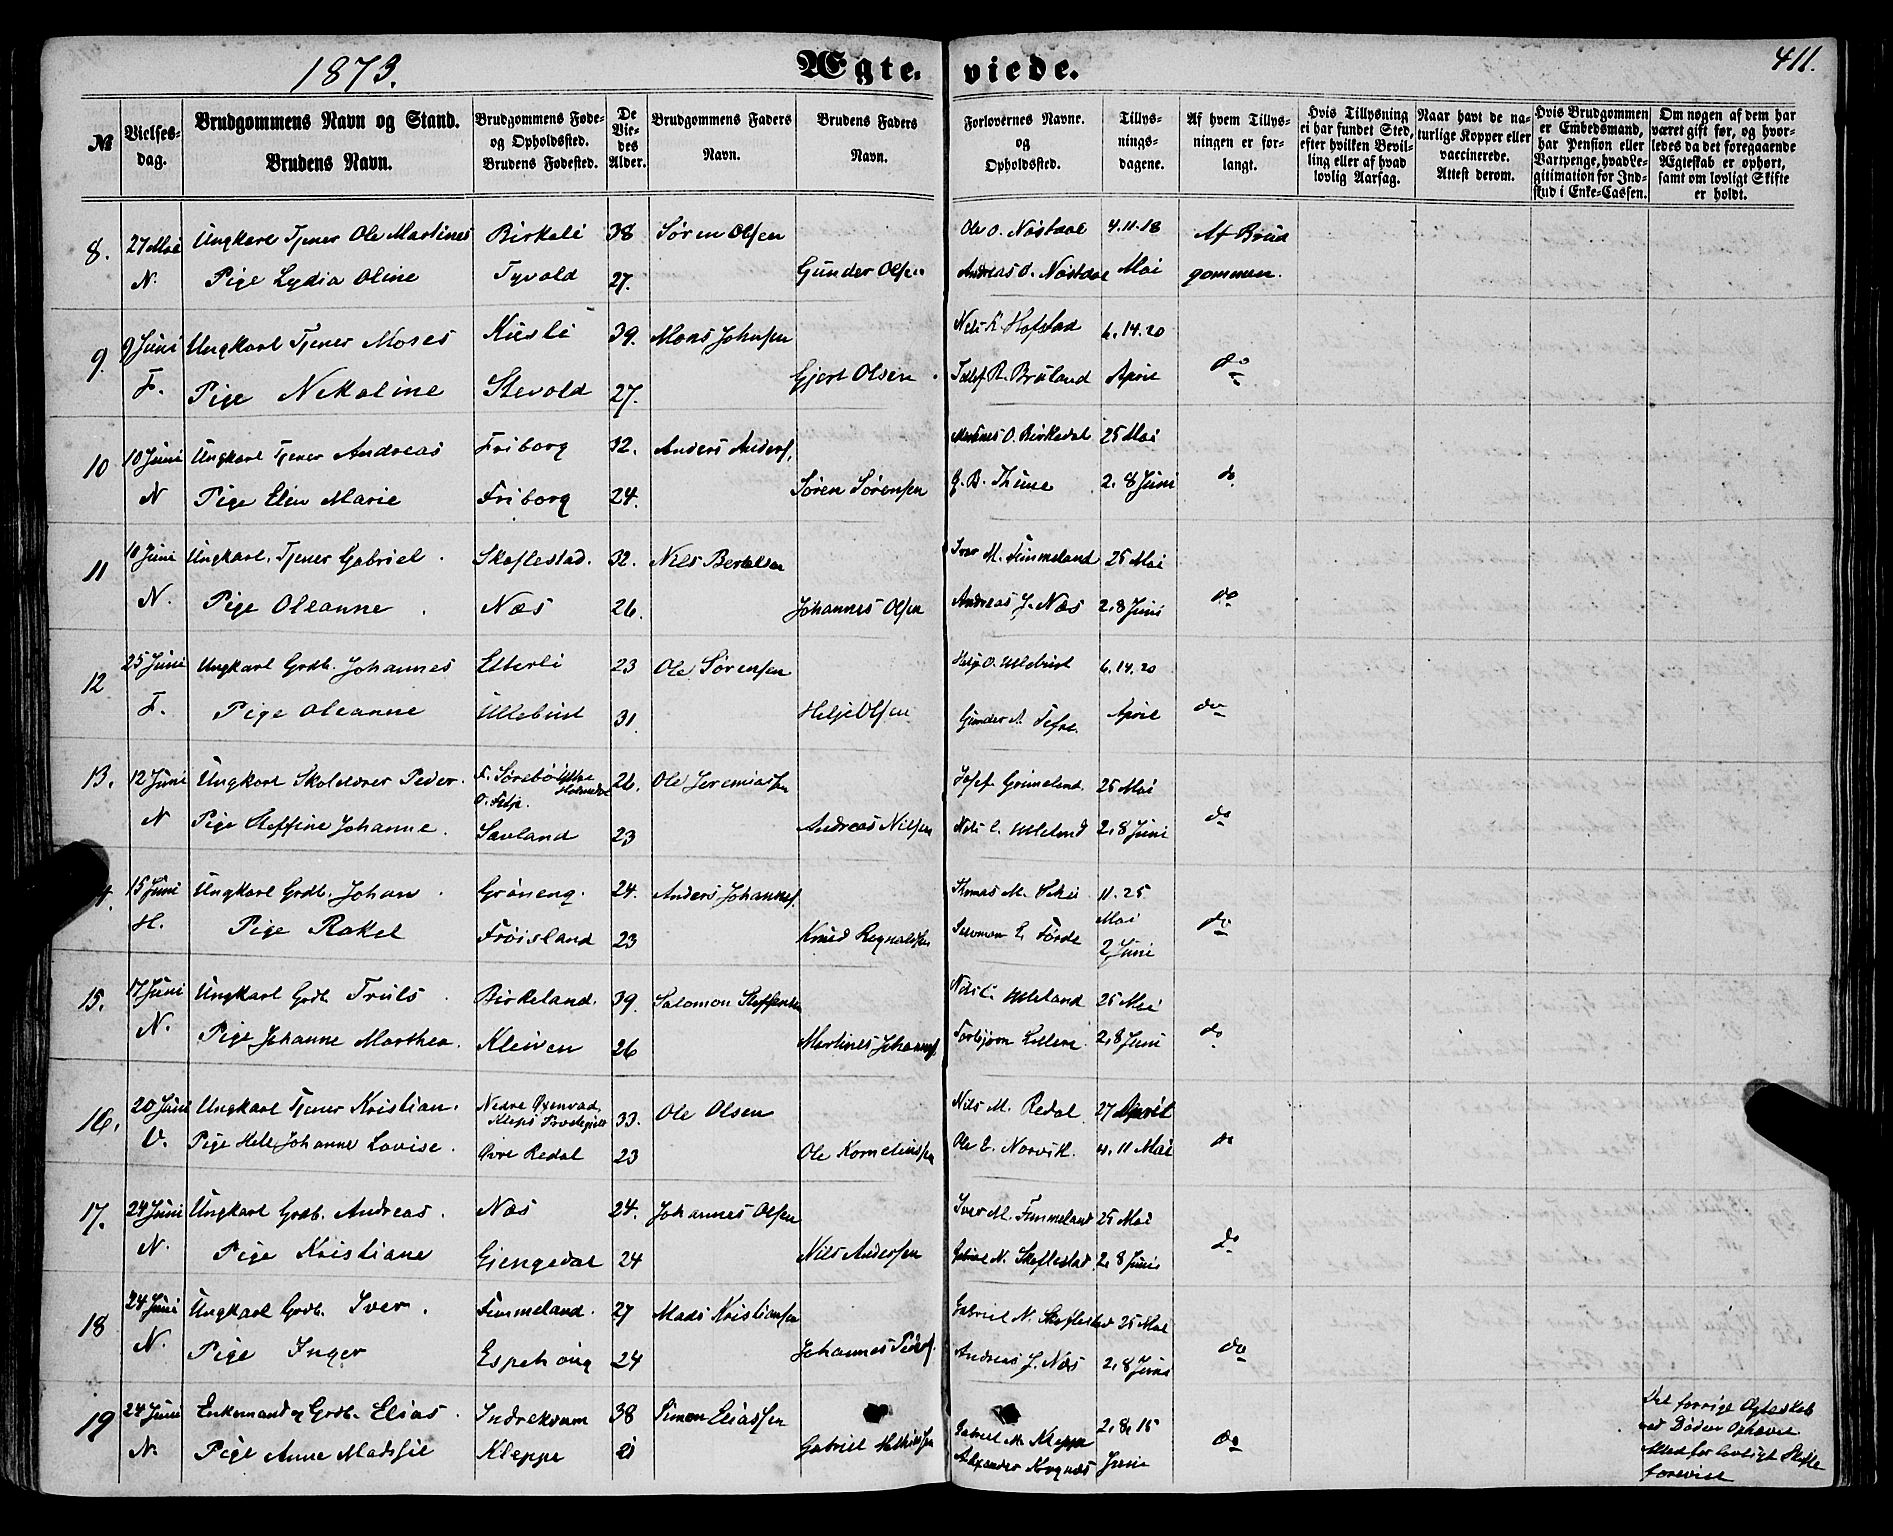 1873.
Ægteviede.
411.
№
Vielses-dag.
Brudgommens Navn og Stand.
Brudens Navn.
Brudgommens Føde- og Opholdssted.
Brudens Fødested.
De Viedes Alder.
Brudgommens Faders Navn.
Brudens Faders Navn.
Forlovernes Navne. og Opholdssted.
Tillysningsdagene.
Af hvem Tillysningen er forlangt.
Hvis Tillysning ei har fundet Sted, efter hvilken Bevilling eller af hvad lovlig Aarsag.
Naar havt de naturlige Kopper eller vaccinerede. Attest derom.
Hvis Brudgommen er Embedsmand, har Pension eller Vartpenge, hvad Legitimation for Indskud i Enke-Cassen.
Om nogen af dem har været gift før, og hvorledes da det foregaaende Ægteskab er ophørt, samt om lovligt Skifte er holdt.
8. 27 Mai Ungkarl Tjener Ole Martines Birkeli 38 Søren Olsen Ole O. Nøstdal 4.11.18 Af Brud
N. Pige Lydia Oline Tyvold 27. Gunder Olsen Andreas O. Nøstdal Mai gommen.
9. 9 Juni Ungkarl Tjener Moses Kusli 39. Mons Johnsen Nils K. Hofstad 6.14.20
F. Pige Nikoline Stevold 27. Gjert Olsen R. Bruland April do
10 10 Juni Ungkarl Tjener Andreas Friborg 32. Anders Anders. Martines O. Birkedal 25 Mai
N Pige Elen Marie Friborg 24. Søren Sørensen G. B. Thime 2, 8 Juni do
11 10 Juni Ungkarl, Tjener Gabriel Skaflestad. 32. Nils Bertelsen Iver M. Fimmeland 25 Mai
N. Pige Oleanne Næs 26. Johannes Olsen Andreas J. Næs 2, 8 Juni do
12 25 Juni Ungkarl Grdb. Johannes Etterli 23 Ole Sørensen Helje O. Ullebust 6.14.20
F. Pige Oleanne Ullebust 31. Helje Olsen Gunder A. April do
13. 12 Juni Ungkarl Skolelærer Peder F. Sørebø
O. Felje. 26. Ole Jeremiassen Josef Grimelund 25 Mai
N Pige Steffine Johanne. Sæland 23 Andreas Nilsen Nils E. Ulleland 2, 8 Juni do
4. 15 Juni Ungkarl Grdb. Johan Grøneng. 24. Anders Johannes. Thomas M. 11. 25 Mai
H. Pige Rakel Frøisland 23 Knud Regnaldsen Salomon E. Førde 2 Juni do
15. 17 Juni Ungkarl Grdb. Truls Birkeland. 39. Salomon Steffensen Nils E. Ulleland 25 Mai
N. Pige Johanne Marthea. Kleiven 26 Martines Johannes. Torbjørn 2, 8 Juni do
16. 20 Juni Ungkarl Tjener Kristian. Nedre Øxenvad,
Kleps Prestegjeld 33. Ole Olsen Nils M. Redal 27 April
V. Pige Johanne Lovise. Øvre Redal 23 Ole Korneliussen Ole E. Norvik. 4. 11 Mai do
17. 24 Juni Ungkarl Grdb. Andreas. Næs 24. Johannes Olsen Iver M. Fimmeland 25 Mai
N. Pige Kristiane Gjengedal 24 Nils Andersen Gabriel N. Skaflestad 2, 8 Juni do
18 24 Juni Ungkarl Grdb. Iver. Fimmeland. 27 Mads Kristiansen Gabriel N. Skaflestad 25 Mai
N. Pige Inger Espehoug 24 Johannes Peders. Andreas J. Næs 2, 8 Juni do
19 24 Juni Enkemand og Grdb. Elias Indrekvam 38 Simon Eliassen Gabriel M. Kleppe 2, 8, 15
N. Pige Anne Madsje Kleppe 21 Gabriel Mathiassen Alexander Juni do
Det forrige Ægteskab
ved Døden Ophævet
Attest for lovligt Skifte
forevist